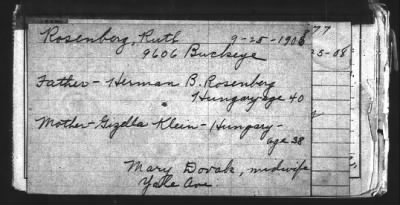 Rosenberg, Ruth 9-25-1908
9606 Buckeye
Father - Herman B. Rosenberg
Hungary age 40
Mother - Gizella Klein - Hungary -
age 38
Mary Dovak, midwife
Yale Ave
77
5-08